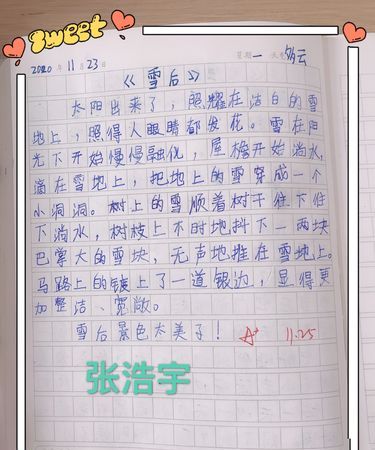 Sweet
2020年11月23日 星期一 天气多云
《雪后》
太阳出来了，照耀在洁白的雪
地上，照得人眼睛都发花。雪在阳
光下开始慢慢融化，屋檐开始淌水，
滴在雪地上，把地上的雪穿成一个
小洞洞。树上的雪顺着树干往下往
下淌水，树枝上不时地抖下一两块
巴掌大的雪块，无声地堆在雪地上。
马路上的镀上了一道银边，显得更
加整洁、宽敞。
雪后景色太美了！ A+ 11.25
张浩宇